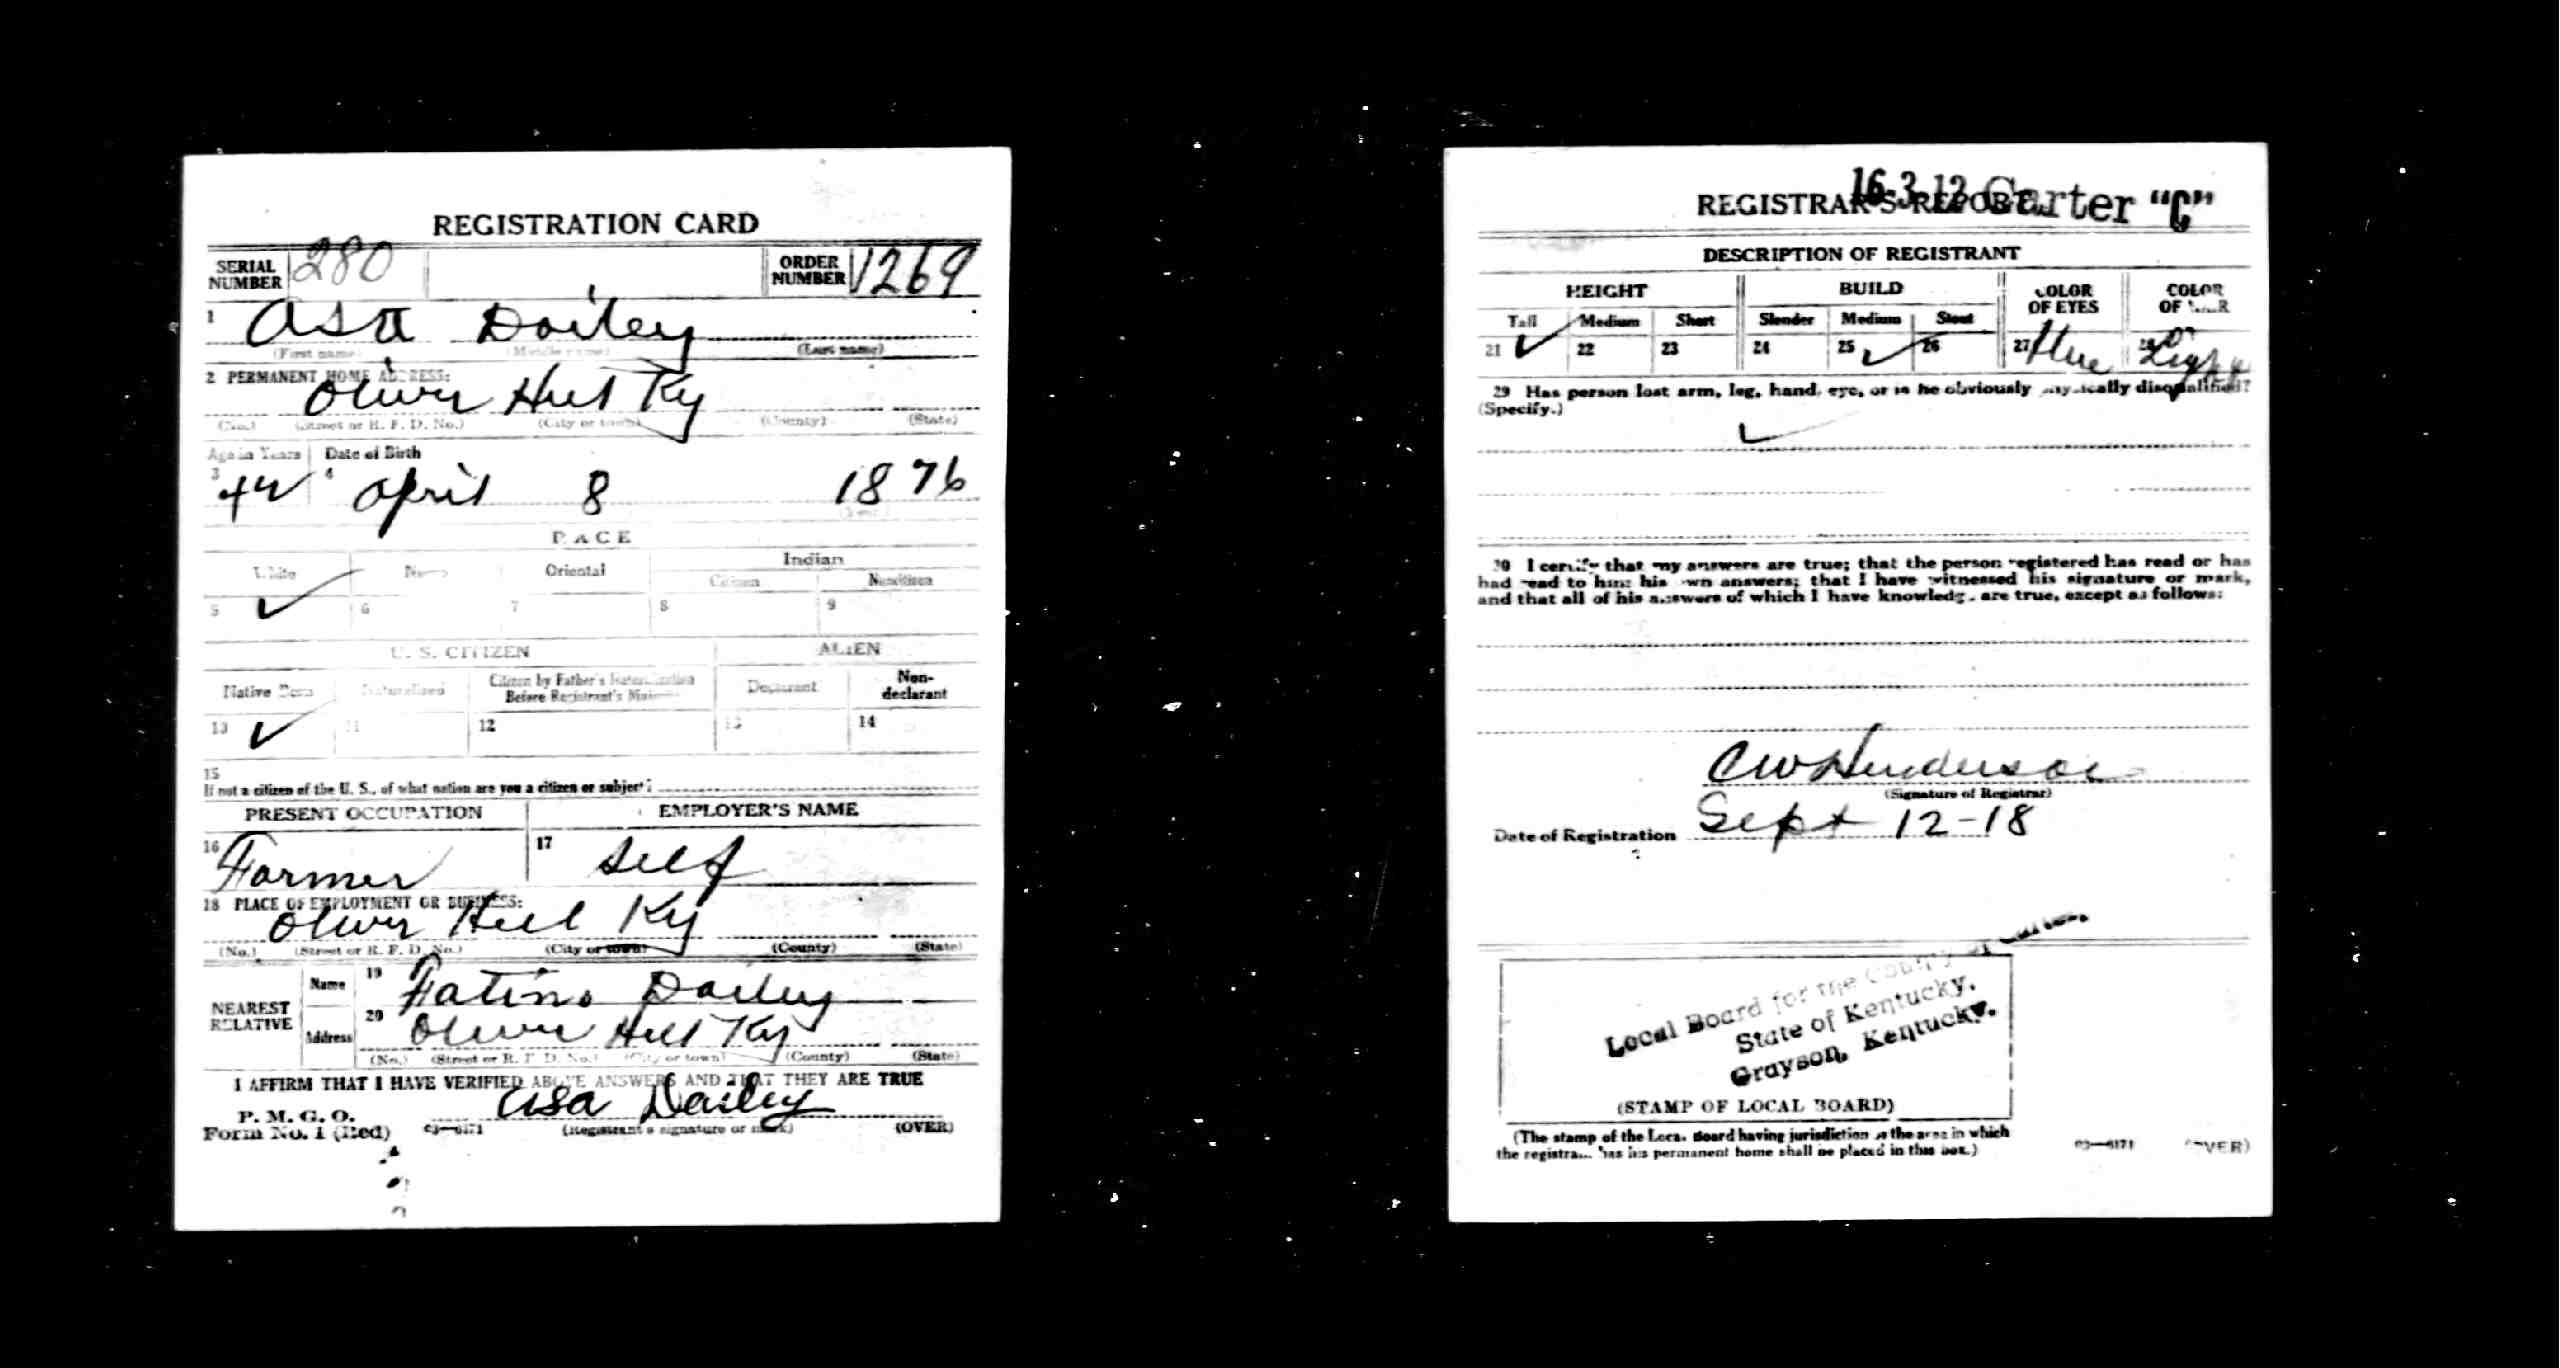 REGISTRATION CARD
SERIAL NUMBER 280 ORDER NUMBER 1269
1 Asa Dailey
(First name) (Middle name) (Last name)
2 PERMANENT HOME ADDRESS:
Oliver Hill Ky
(No.) (Street or R. F. D. No.) (City or town) (County) (State)
Age in Years Date of Birth
3 42 4 April 8 1876
(Year)
RACE
White Negro Oriental Indian
Citizen Noncitizen
5 ✓ 6 7 8 9
U. S. CITIZEN ALIEN
Native Born Naturalized Citizen by Father's Naturalization Before Registrant's Majority Declarant Non-declarant
10 ✓ 11 12 13 14
15
If not a citizen of the U. S., of what nation are you a citizen or subject?
PRESENT OCCUPATION EMPLOYER'S NAME
16 Farmer 17 Self
18 PLACE OF EMPLOYMENT OR BUSINESS:
Oliver Hill Ky
(No.) (Street or R. F. D. No.) (City or town) (County) (State)
NEAREST RELATIVE
Name 19 Dailey
Address 20 Oliver Hill Ky
(No.) (Street or R. F. D. No.) (City or town) (County) (State)
I AFFIRM THAT I HAVE VERIFIED ABOVE ANSWERS AND THAT THEY ARE TRUE
P. M. G. O.
Form No. 1 (Red) 03—6171 Asa Dailey
(Registrant's signature or mark) (OVER)
16-3-12 Carter "C"
REGISTRAR'S REPORT
DESCRIPTION OF REGISTRANT
HEIGHT BUILD COLOR OF EYES COLOR OF HAIR
Tall Medium Short Slender Medium Stout
21 ✓ 22 23 24 25 ✓ 26 27 Blue 28 Light
29 Has person lost arm, leg, hand, eye, or is he obviously physically disqualified?
(Specify.)
✓
30 I certify that my answers are true; that the person registered has read or has
had read to him his own answers; that I have witnessed his signature or mark,
and that all of his answers of which I have knowledge are true, except as follows:
C W Henderson
(Signature of Registrar)
Date of Registration Sept 12-18
Local Board for the County of Carter,
State of Kentucky,
Grayson, Kentucky.
(STAMP OF LOCAL BOARD)
(The stamp of the Local Board having jurisdiction of the area in which
the registrant has his permanent home shall be placed in this box.)
03—6171 (OVER)